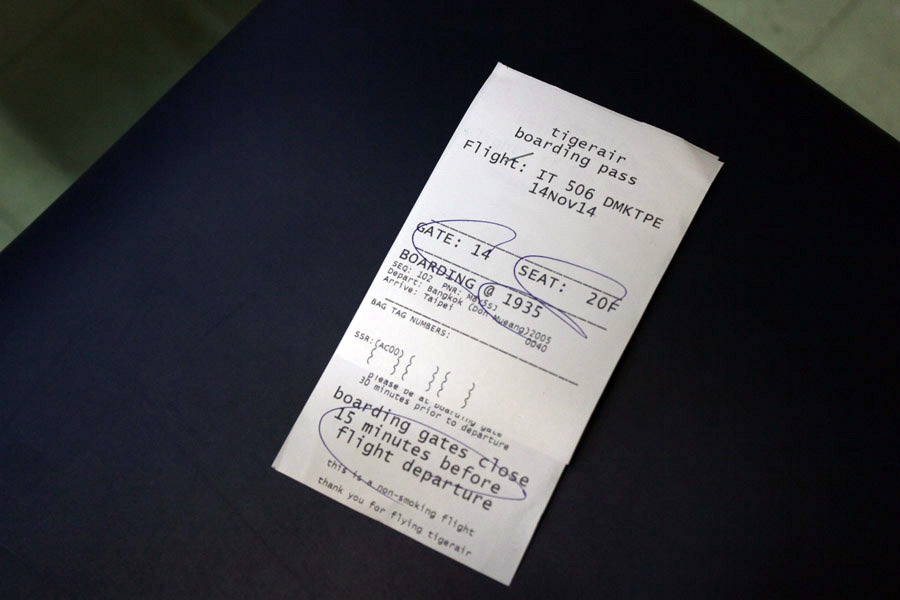 tigerair
boarding pass
Flight: IT 506 DMKTPE
14Nov14
GATE: 14
SEAT: 20F
BOARDING @ 1935
SEQ: 102 PNR:
Depart: Bangkok (Don Mueang)2005
Arrive: Taipei 0040
BAG TAG NUMBERS:
SSR:{AC00}{
{ }{ }{ }
please be at boarding gate
30 minutes prior to departure
boarding gates close
15 minutes before
flight departure
this is a non-smoking flight
thank you for flying tigerair